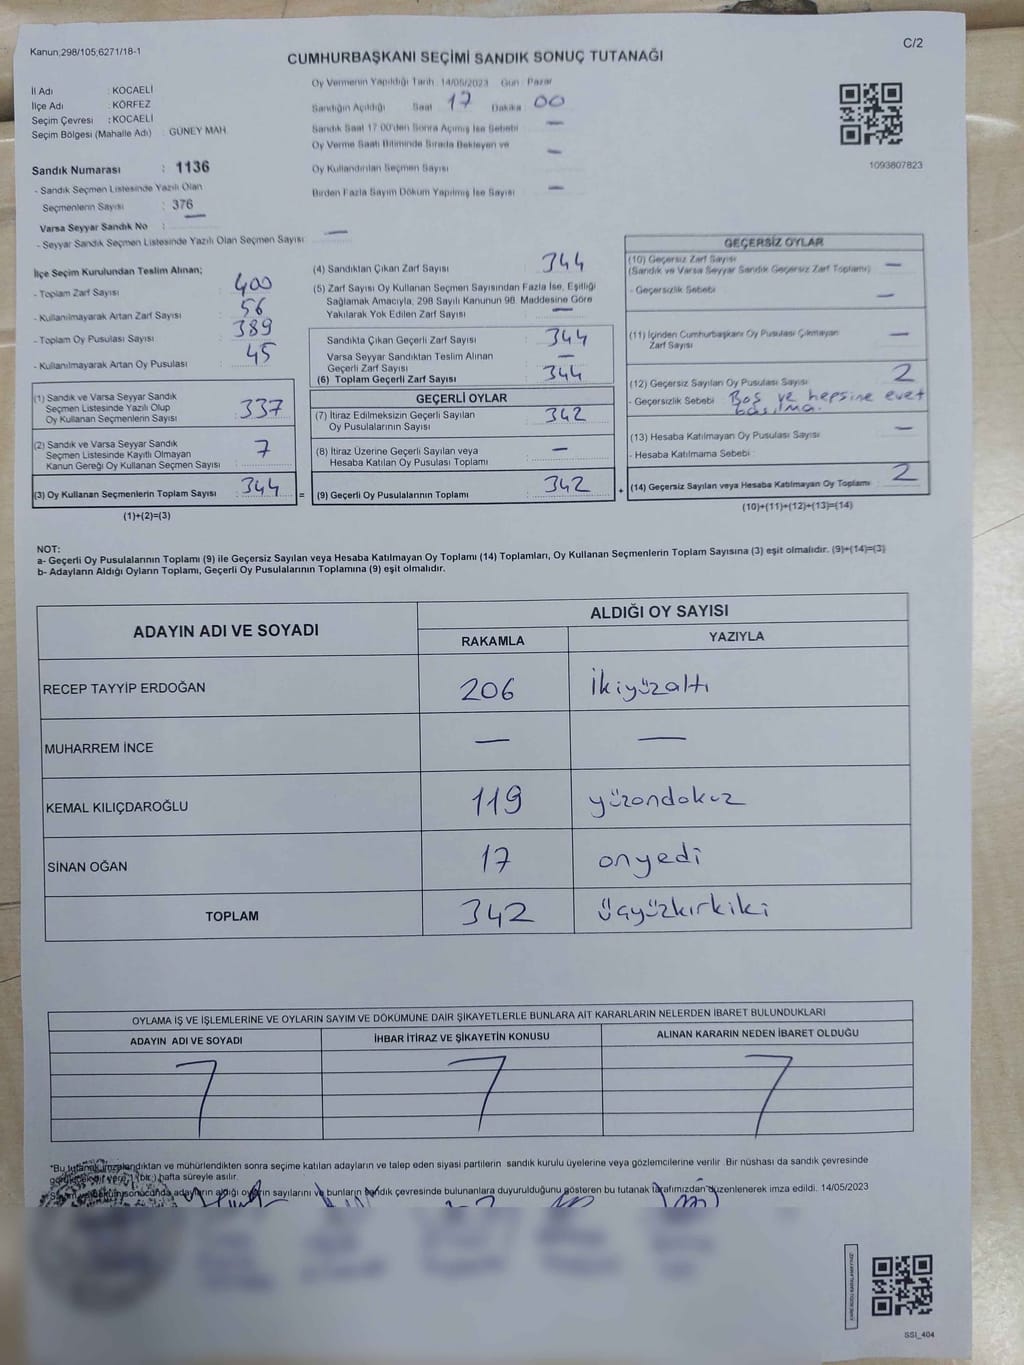 Kanun,298/105,6271/18-1
C/2
CUMHURBAŞKANI SEÇİMİ SANDIK SONUÇ TUTANAĞI
İl Adı : KOCAELİ
İlçe Adı : KÖRFEZ
Seçim Çevresi : KOCAELİ
Seçim Bölgesi (Mahalle Adı) : GÜNEY MAH
Sandık Numarası : 1136
- Sandık Seçmen Listesinde Yazılı Olan
Seçmenlerin Sayısı : 376
Varsa Seyyar Sandık No : —
- Seyyar Sandık Seçmen Listesinde Yazılı Olan Seçmen Sayısı : —
Oy Vermenin Yapıldığı Tarih : 14/05/2023 Gün : Pazar
Sandığın Açıldığı Saat 17 Dakika 00
Sandık Saat 17:00'den Sonra Açımış İse Sebebi —
Oy Verme Saati Bitiminde Sırada Bekleyen ve
Oy Kullandırılan Seçmen Sayısı —
Birden Fazla Sayım Döküm Yapılmış İse Sayısı —
1093807823
İlçe Seçim Kurulundan Teslim Alınan;
- Toplam Zarf Sayısı : 400
- Kullanılmayarak Artan Zarf Sayısı : 56
- Toplam Oy Pusulası Sayısı : 389
- Kullanılmayarak Artan Oy Pusulası : 45
(1) Sandık ve Varsa Seyyar Sandık
Seçmen Listesinde Yazılı Olup
Oy Kullanan Seçmenlerin Sayısı : 337
(2) Sandık ve Varsa Seyyar Sandık
Seçmen Listesinde Kayıtlı Olmayan
Kanun Gereği Oy Kullanan Seçmen Sayısı : 7
(3) Oy Kullanan Seçmenlerin Toplam Sayısı : 344
(1)+(2)=(3)
(4) Sandıktan Çıkan Zarf Sayısı : 344
(5) Zarf Sayısı Oy Kullanan Seçmen Sayısından Fazla İse, Eşitliği
Sağlamak Amacıyla, 298 Sayılı Kanunun 98. Maddesine Göre
Yakılarak Yok Edilen Zarf Sayısı : —
Sandıkta Çıkan Geçerli Zarf Sayısı : 344
Varsa Seyyar Sandıktan Teslim Alınan
Geçerli Zarf Sayısı : —
(6) Toplam Geçerli Zarf Sayısı : 344
GEÇERLİ OYLAR
(7) İtiraz Edilmeksizin Geçerli Sayılan
Oy Pusulalarının Sayısı : 342
(8) İtiraz Üzerine Geçerli Sayılan veya
Hesaba Katılan Oy Pusulası Toplamı : —
= (9) Geçerli Oy Pusulalarının Toplamı : 342 +
GEÇERSİZ OYLAR
(10) Geçersiz Zarf Sayısı
(Sandık ve Varsa Seyyar Sandık Geçersiz Zarf Toplamı) : —
- Geçersizlik Sebebi : —
(11) İçinden Cumhurbaşkanı Oy Pusulası Çıkmayan
Zarf Sayısı : —
(12) Geçersiz Sayılan Oy Pusulası Sayısı : 2
- Geçersizlik Sebebi : Boş ve hepsine evet
basılma.
(13) Hesaba Katılmayan Oy Pusulası Sayısı : —
- Hesaba Katılmama Sebebi :
(14) Geçersiz Sayılan veya Hesaba Katılmayan Oy Toplamı : 2
(10)+(11)+(12)+(13)=(14)
NOT:
a- Geçerli Oy Pusulalarının Toplamı (9) ile Geçersiz Sayılan veya Hesaba Katılmayan Oy Toplamı (14) Toplamları, Oy Kullanan Seçmenlerin Toplam Sayısına (3) eşit olmalıdır. (9)+(14)=(3)
b- Adayların Aldığı Oyların Toplamı, Geçerli Oy Pusulalarının Toplamına (9) eşit olmalıdır.
ADAYIN ADI VE SOYADI
ALDIĞI OY SAYISI
RAKAMLA YAZIYLA
RECEP TAYYİP ERDOĞAN 206 ikiyüzaltı
MUHARREM İNCE — —
KEMAL KILIÇDAROĞLU 119 yüzondokuz
SİNAN OĞAN 17 onyedi
TOPLAM 342 üçyüzkırkiki
OYLAMA İŞ VE İŞLEMLERİNE VE OYLARIN SAYIM VE DÖKÜMÜNE DAİR ŞİKAYETLERLE BUNLARA AİT KARARLARIN NELERDEN İBARET BULUNDUKLARI
ADAYIN ADI VE SOYADI İHBAR İTİRAZ VE ŞİKAYETİN KONUSU ALINAN KARARIN NEDEN İBARET OLDUĞU
*Bu tutanak imzalandıktan ve mühürlendikten sonra seçime katılan adayların ve talep eden siyasi partilerin sandık kurulu üyelerine veya gözlemcilerine verilir. Bir nüshası da sandık çevresinde
1 (bir) hafta süreyle asılır.
sonucunda adayların aldığı oyların sayılarını ve bunların sandık çevresinde bulunanlara duyurulduğunu gösteren bu tutanak tarafımızdan düzenlenerek imza edildi. 14/05/2023
SSI_404